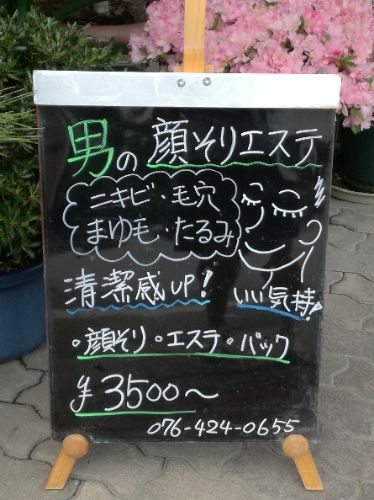 男の 顔そりエステ
ニキビ・毛穴
まゆ毛・たるみ
清潔感UP! いい気持♪
・顔そり・エステ・パック
¥3500〜
076-424-0655